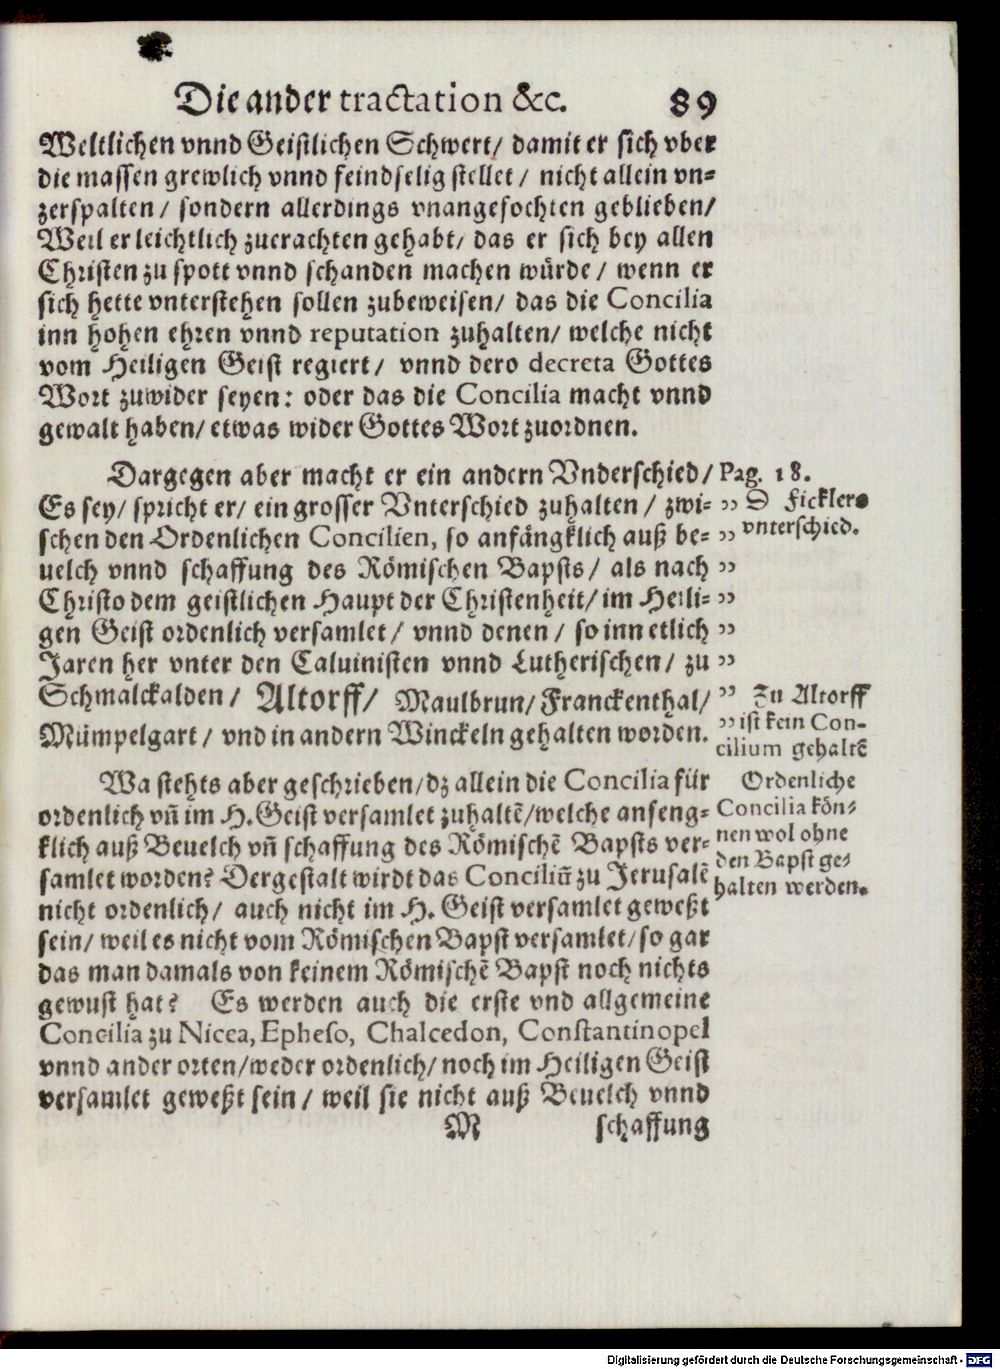 Die ander tractation &c. 89
Weltlichen vnnd Geistlichen Schwert/ damit er sich vber
die massen grewlich vnnd feindselig stellet/ nicht allein vn-
zerspalten/ sondern allerdings vnangefochten geblieben/
Weil er leichtlich zuerachten gehabt/ das er sich bey allen
Christen zu spott vnnd schanden machen würde/ wenn er
sich hette vnterstehen sollen zubeweisen/ das die Concilia
inn hohen ehren vnnd reputation zuhalten/ welche nicht
vom Heiligen Geist regiert/ vnnd dero decreta Gottes
Wort zuwider seyen: oder das die Concilia macht vnnd
gewalt haben/ etwas wider Gottes Wort zuordnen.
Dargegen aber macht er ein andern Vnderschied/
Es sey/ spricht er/ ein grosser Vnterschied zuhalten/ zwi- ”
schen den Ordenlichen Concilien, so anfängklich auß be- ”
uelch vnnd schaffung des Römischen Bapsts/ als nach ”
Christo dem geistlichen Haupt der Christenheit/ im Heili- ”
gen Geist ordenlich versamlet/ vnnd denen/ so inn etlich ”
Jaren her vnter den Caluinisten vnnd Lutherischen/ zu ”
Schmalckalden/ Altorff/ Maulbrun/ Franckenthal/ ”
Mümpelgart/ vnd in andern Winckeln gehalten worden. ”
Pag. 18.
D Ficklers
vnterschied.
Zu Altorff
ist kein Con-
cilium gehaltẽ
Wa stehts aber geschrieben/ dz allein die Concilia für
ordenlich vñ im H. Geist versamlet zuhaltẽ/ welche anfeng-
klich auß Beuelch vñ schaffung des Römischẽ Bapsts ver-
samlet worden? Dergestalt wirdt das Conciliũ zu Jerusalẽ
nicht ordenlich/ auch nicht im H. Geist versamlet geweßt
sein/ weil es nicht vom Römischen Bapst versamlet/ so gar
das man damals von keinem Römischẽ Bapst noch nichts
gewust hat? Es werden auch die erste vnd allgemeine
Concilia zu Nicea, Epheso, Chalcedon, Constantinopel
vnnd ander orten/ weder ordenlich/ noch im Heiligen Geist
versamlet geweßt sein/ weil sie nicht auß Beuelch vnnd
Ordenliche
Concilia kön-
nen wol ohne
den Bapst ge-
halten werden.
M schaffung
Digitalisierung gefördert durch die Deutsche Forschungsgemeinschaft - DFG